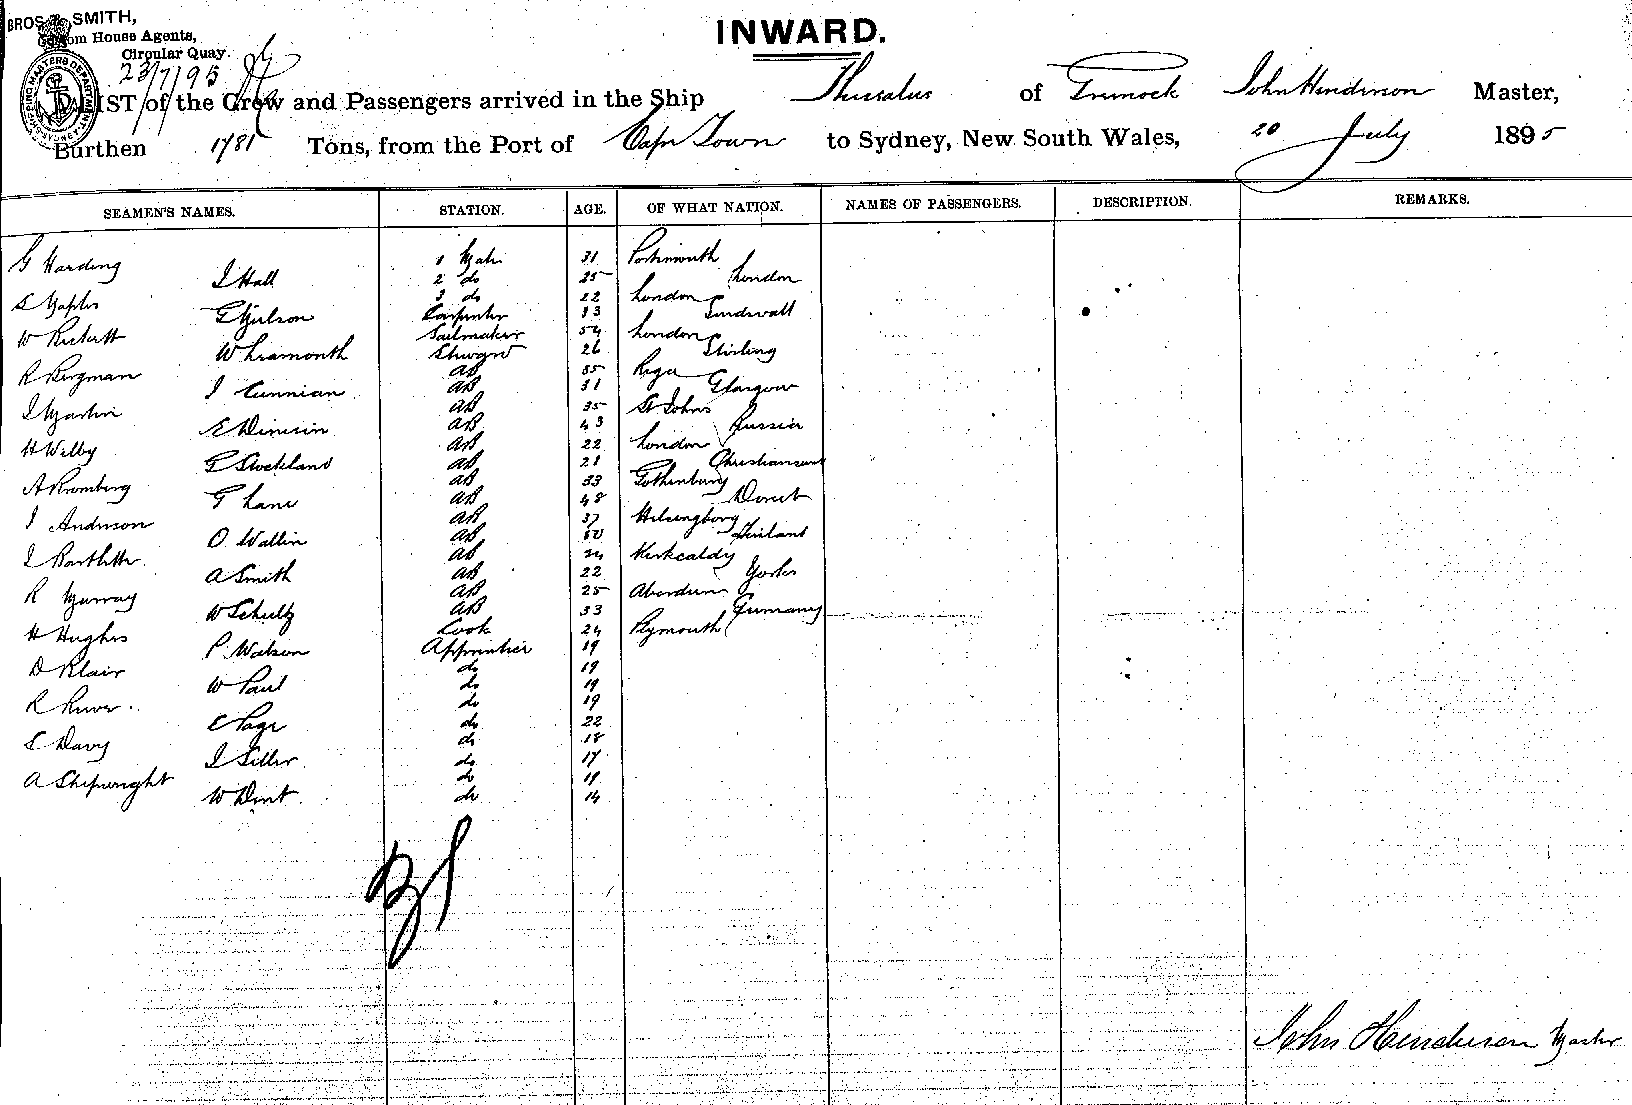 BROS & SMITH,
Custom House Agents,
Circular Quay.
23/7/95
INWARD.
LIST of the Crew and Passengers arrived in the Ship Thessalus of Greenock John Henderson Master,
Burthen 1781 Tons, from the Port of Cape Town to Sydney, New South Wales, 20 July 1895
SEAMEN'S NAMES. STATION. AGE. OF WHAT NATION. NAMES OF PASSENGERS. DESCRIPTION. REMARKS.
G Harding 1 Mate 31 Portsmouth
J Hall 2 do 25 London
S Maples 3 do 22 London
G Carpenter 33
W Rickett Sailmaker 54 London
W Learmonth Steward 26 Stirling
R Bergman AB 35 Riga
J Cunnian AB 31 Glasgow
J Martin AB 35 St Johns
AB 43 Russia
H Welby AB 22 London
G Stockland AB 21 Christiansund
A Kromberg AB 33 Gothenburg
G Lane AB 48 Dorset
J Anderson AB 37 Helsingborg
O. Wallin AB 50 Finland
J Bartlett AB Kirkcaldy
A Smith AB 22 Yorks
R Murray AB 25 Aberdeen
W Schultz AB 33 Germany
H Hughes Cook 24 Plymouth
P. Watson Apprentice 19
D Blair do 19
W Paul do 19
R do 19
E Page do 22
S Davy do 18
J Siller do 17
A Shipwright do
W Dent do 14
John Henderson Master